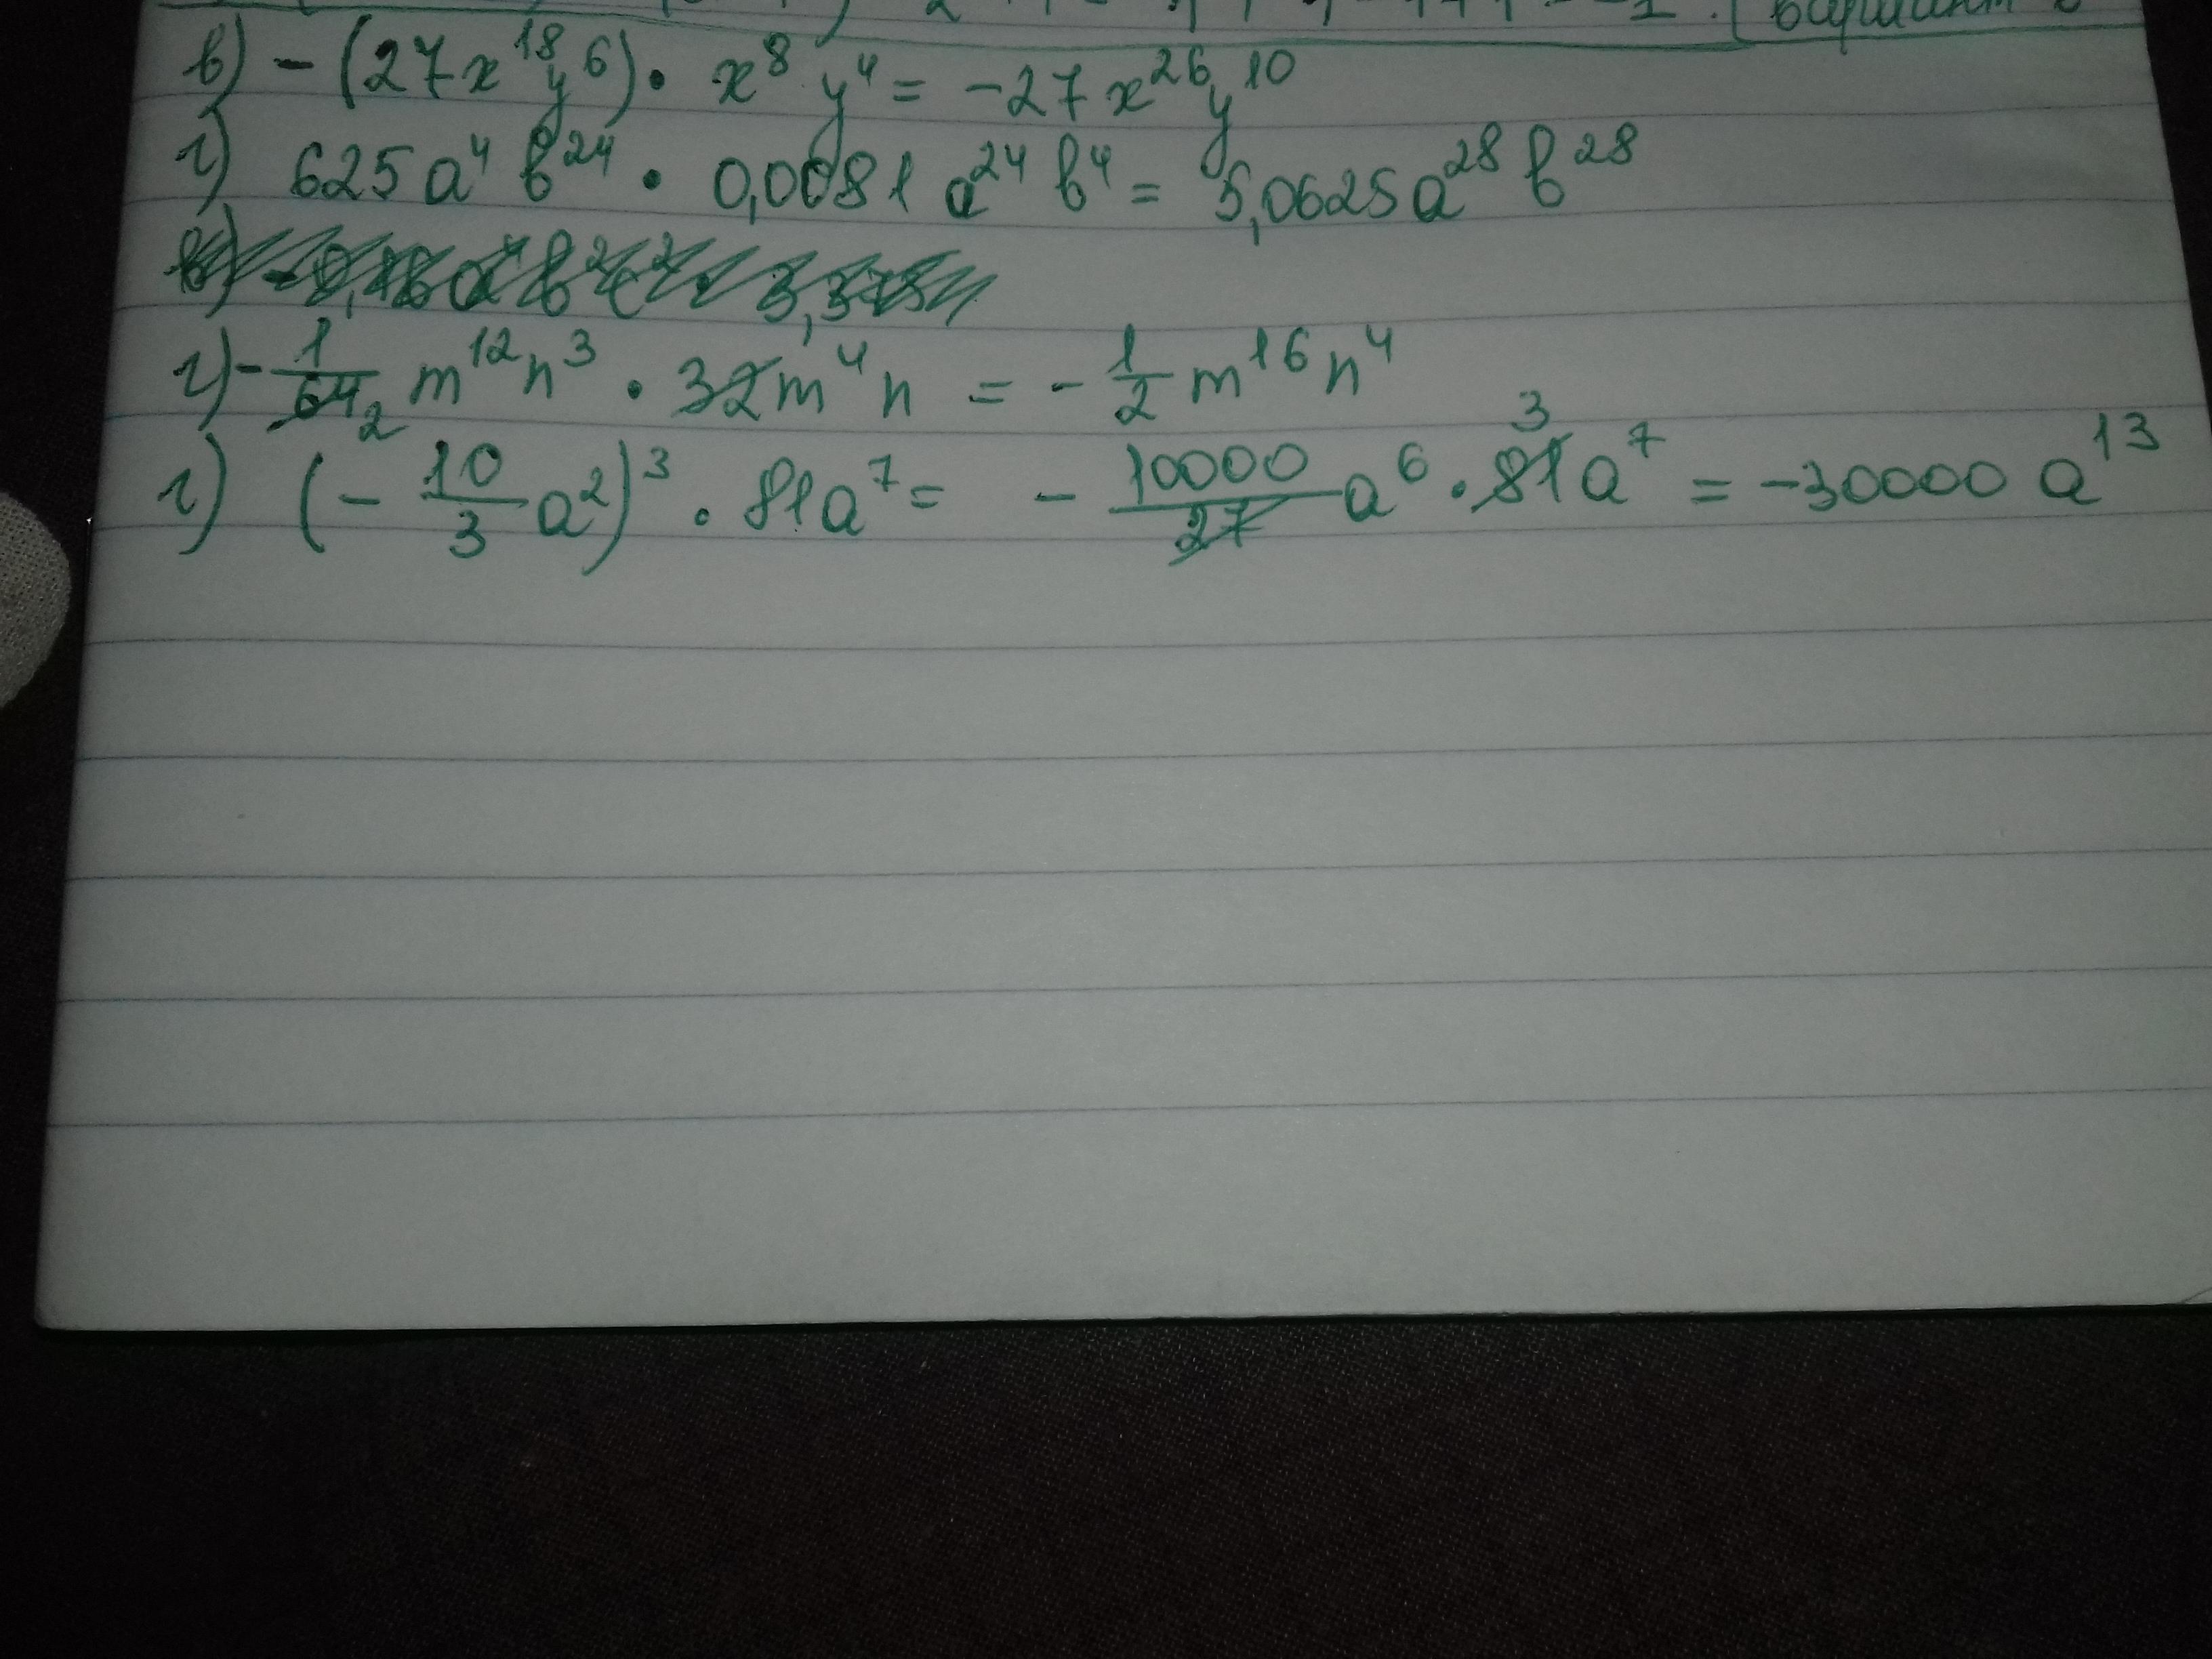 вариант
в) - (27x¹⁸y⁶) · x⁸y⁴ = -27x²⁶y¹⁰
г) 625a⁴b²⁴ · 0,0081a²⁴b⁴ = 5,0625a²⁸b²⁸
г) - 1/64 2 m¹²n³ · 32m⁴n = - 1/2 m¹⁶n⁴
г) (- 10/3 a²)³ · 81a⁷ = - 10000/27 a⁶ · 81 3 a⁷ = -30000 a¹³